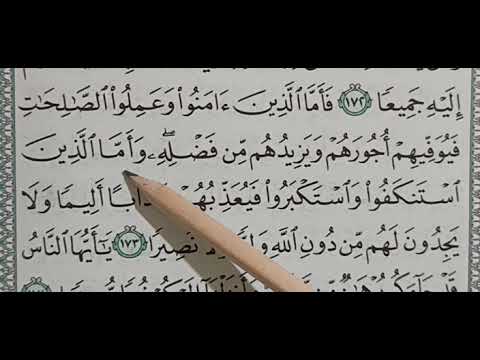 إِلَيْهِ جَمِيعًا ١٧٢ فَأَمَّا الَّذِينَ ءَامَنُوا۟ وَعَمِلُوا۟ الصَّٰلِحَٰتِ
فَيُوَفِّيهِمْ أُجُورَهُمْ وَيَزِيدُهُم مِّن فَضْلِهِۦۖ وَأَمَّا الَّذِينَ
اسْتَنكَفُوا۟ وَاسْتَكْبَرُوا۟ فَيُعَذِّبُهُمْ أَلِيمًا وَلَا
يَجِدُونَ لَهُم مِّن دُونِ اللَّهِ نَصِيرًا ١٧٣ يَٰٓأَيُّهَا النَّاسُ